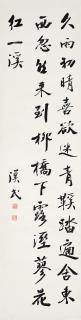 久雨初晴喜欲迷青鞵踏遍舍東
西忽然来到柳橋下露溼蓼花
紅一溪
漢民